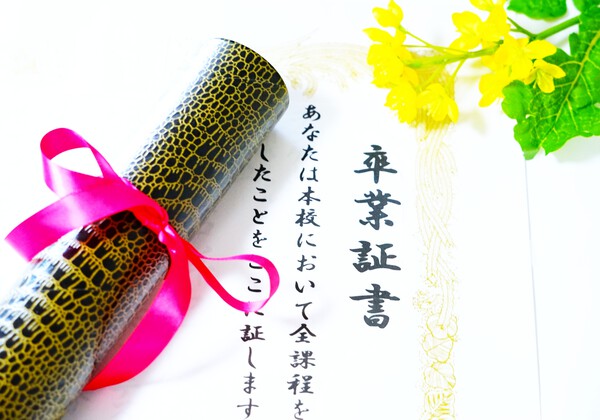 卒業証書
あなたは本校において全課程を
したことをここに証します